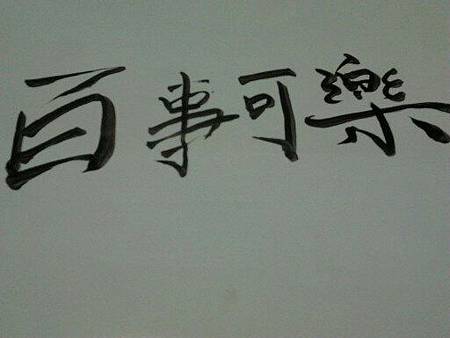 百事可樂